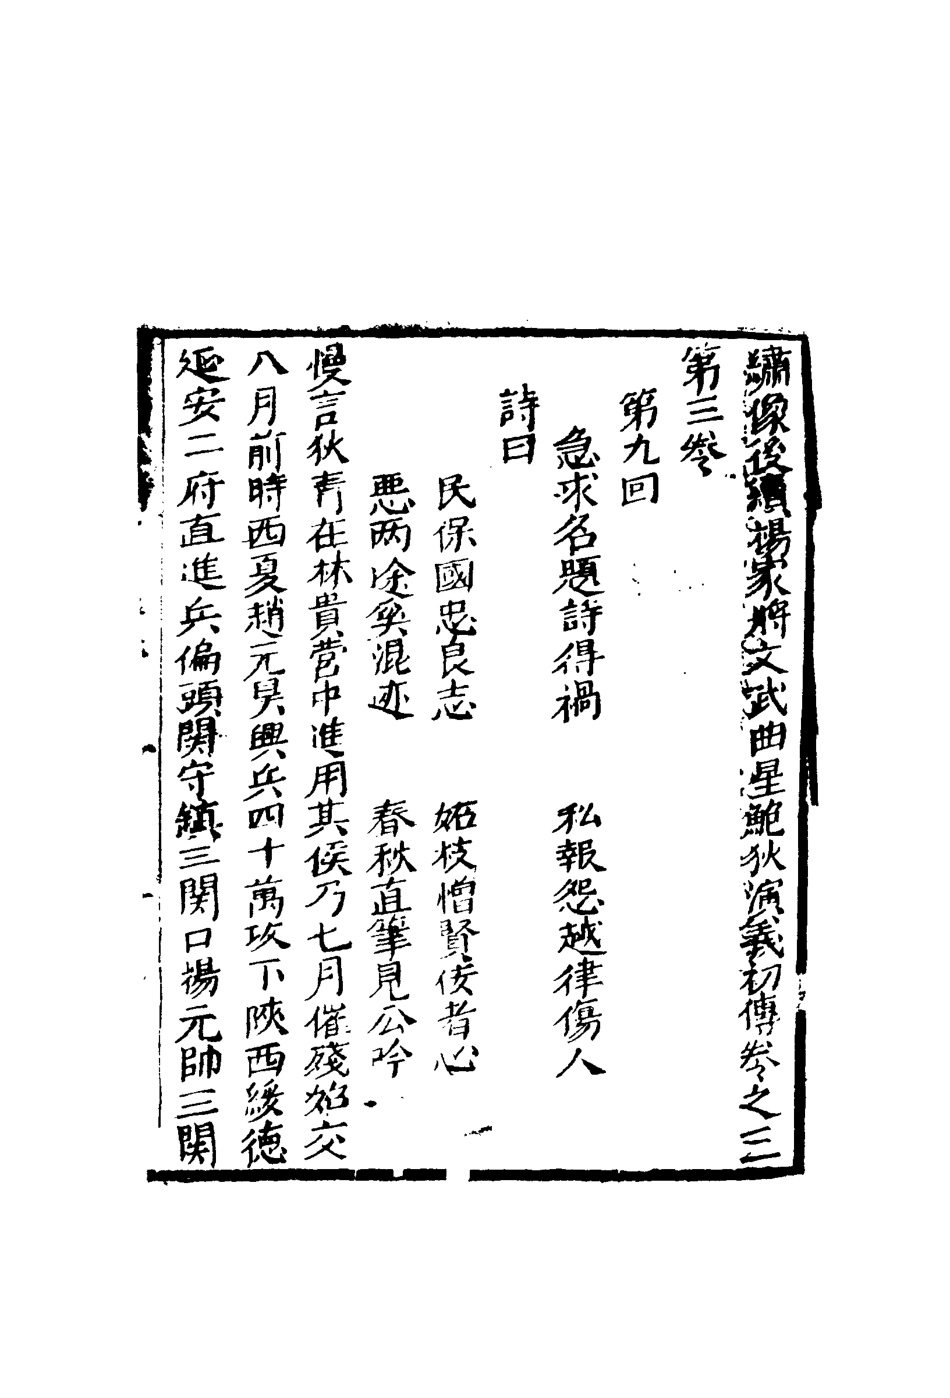 繡像後續楊家將文武曲星鮑狄演義初傳卷之三
第三卷
第九回
急求名題詩得禍　私報怨越律傷人
詩曰
民保國忠良志　妬枝憎賢佞者心
惡两途奚混迹　春秋直筆見公吟
慢言狄青在林貴营中進用其候乃七月催殘始交
八月前時西夏趙元昊興兵四十萬攻下陝西綏德
延安二府直進兵偏頭関守鎮三関口楊元帥三関